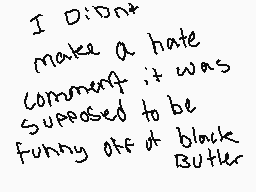 I DiDnt
make a hate
comment it was
supposed to be
funny off of black
BUTler